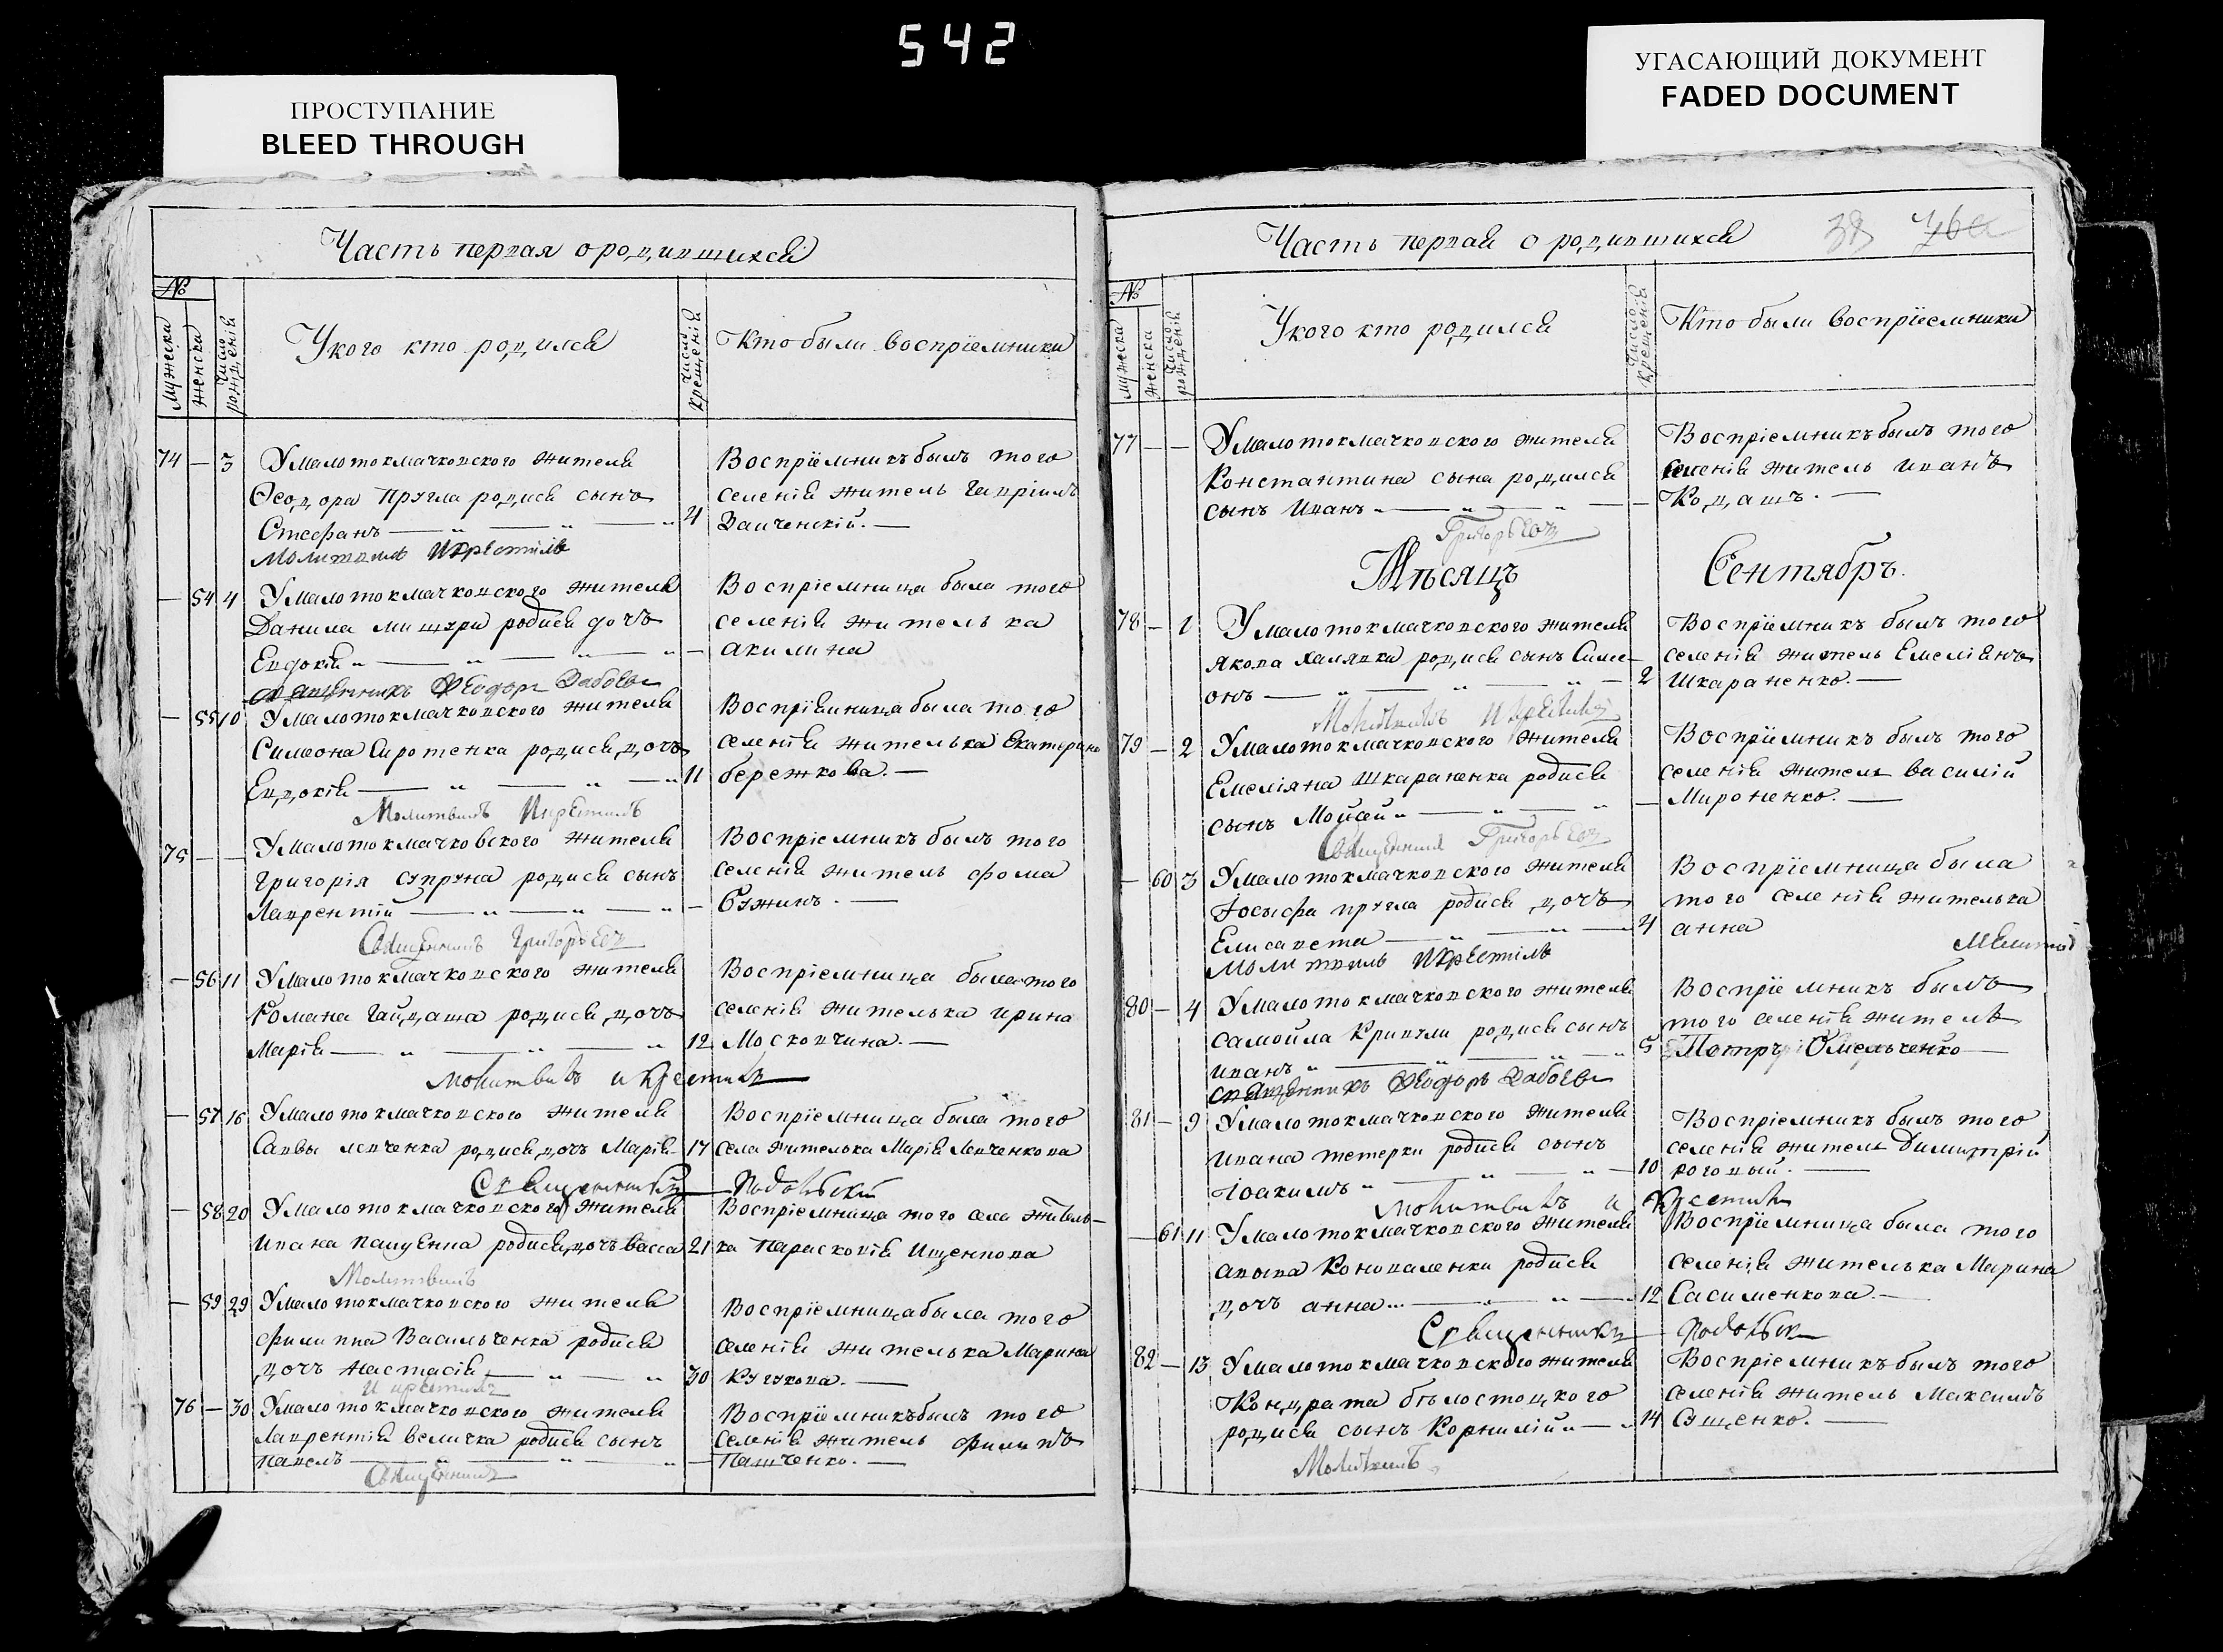 542
ПРОСТУПАНИЕ
BLEED THROUGH
УГАСАЮЩИЙ ДОКУМЕНТ
FADED DOCUMENT
Часть первая о родившихся
№
мужеска
женска
число рожденія
У кого кто родился
число крещенія
Кто были воспріемники
74 — 3 У малотокмачковского жителя
Ѳеодора Пругла родися сынъ
Стефанъ 4
Воспріемникъ былъ того
селенія житель Гавріилъ
Заиченскій.
Молитвилъ И крестилъ
— 54 4 У малотокмачковского жителя
Данила мищури родися дочъ
Евдокія —
Воспріемница была того
селенія жителька
акилина
священникъ Феодоръ
— 55 10 У малотокмачковского жителя
Симеона Сиротенка родися дочъ
Евдокія 11
Воспріемница была того
селенія жителька Екатерина
бережкова.
Молитвилъ И крестилъ
75 — — У малотокмачковского жителя
Григорія супруна родися сынъ
Лаврентій —
Воспріемникъ былъ того
селенія житель фома
бужинъ.
Священникъ Григорьевъ
— 56 11 У малотокмачковского жителя
Романа Гайдаша родися дочъ
Марія 12
Воспріемница была того
селенія жителька ирина
Московчина.
Молитвилъ и крестилъ
— 57 16 У малотокмачковского жителя
Саввы левченка родися дочъ Марія 17
Воспріемница была того
села жителька Марія Левченкова
Священникъ Подольскій
— 58 20 У малотокмачковского жителя
Ивана родися дочъ васса 21
Воспріемница того села житель-
ка Парасковія Ищенкова
Молитвилъ
— 59 29 У малотокмачковского жителя
филиппа Васильченка родися
дочъ настасія 30
Воспріемница была того
селенія жителька Марина
Кугукова.
И крестилъ
76 — 30 У малотокмачковского жителя
Лаврентія величка родися сынъ
павелъ —
Воспріемникъ былъ того
селенія житель филипъ
Пащенко.
Священникъ
Часть первая о родившихся
38
№
мужеска
женска
число рожденія
У кого кто родился
число крещенія
Кто были воспріемники
77 — — У малотокмачковского жителя
Константина сына родился
сынъ Иванъ —
Воспріемникъ былъ того
селенія житель иванъ
Кодашъ.
Григорьевъ
Мѣсяцъ Сентябръ.
78 — 1 У малотокмачковского жителя
якова халявки родися сынъ Симе-
онъ 2
Воспріемникъ былъ того
селенія житель Емеліянъ
Шкараненко.
Молитвилъ И крестилъ
79 — 2 У малотокмачковского жителя
Емеліяна Шкараненка родися
сынъ Мойсей —
Воспріемникъ былъ того
селенія житель василій
Мироненко.
Священникъ Григорьевъ
— 60 3 У малотокмачковского жителя
Іосифа пругла родися дочъ
Елисавета 4
Воспріемница была
того селенія жителька
анна
Молитвилъ И крестилъ
80 — 4 У малотокмачковского жителя
самойла Кривули родися сынъ
иванъ 5
Воспріемникъ былъ
того селенія житель
Петръ Омельченко
священникъ Феодоръ
81 — 9 У малотокмачковского жителя
Ивана тетерки родися сынъ
Іоакимъ 10
Воспріемникъ былъ того
селенія житель Димитрій
роговый.
Молитвилъ и крестилъ
— 61 11 У малотокмачковского жителя
Коноваленки родися
дочъ анна 12
Воспріемница была того
селенія жителька Марина
Сасименкова.
Священникъ Подольск
82 — 13 У малотокмачковского жителя
Кондрата бѣлостоцкого
родися сынъ Корнилій 14
Воспріемникъ былъ того
селенія житель Максимъ
Сущенко.
Молитвилъ